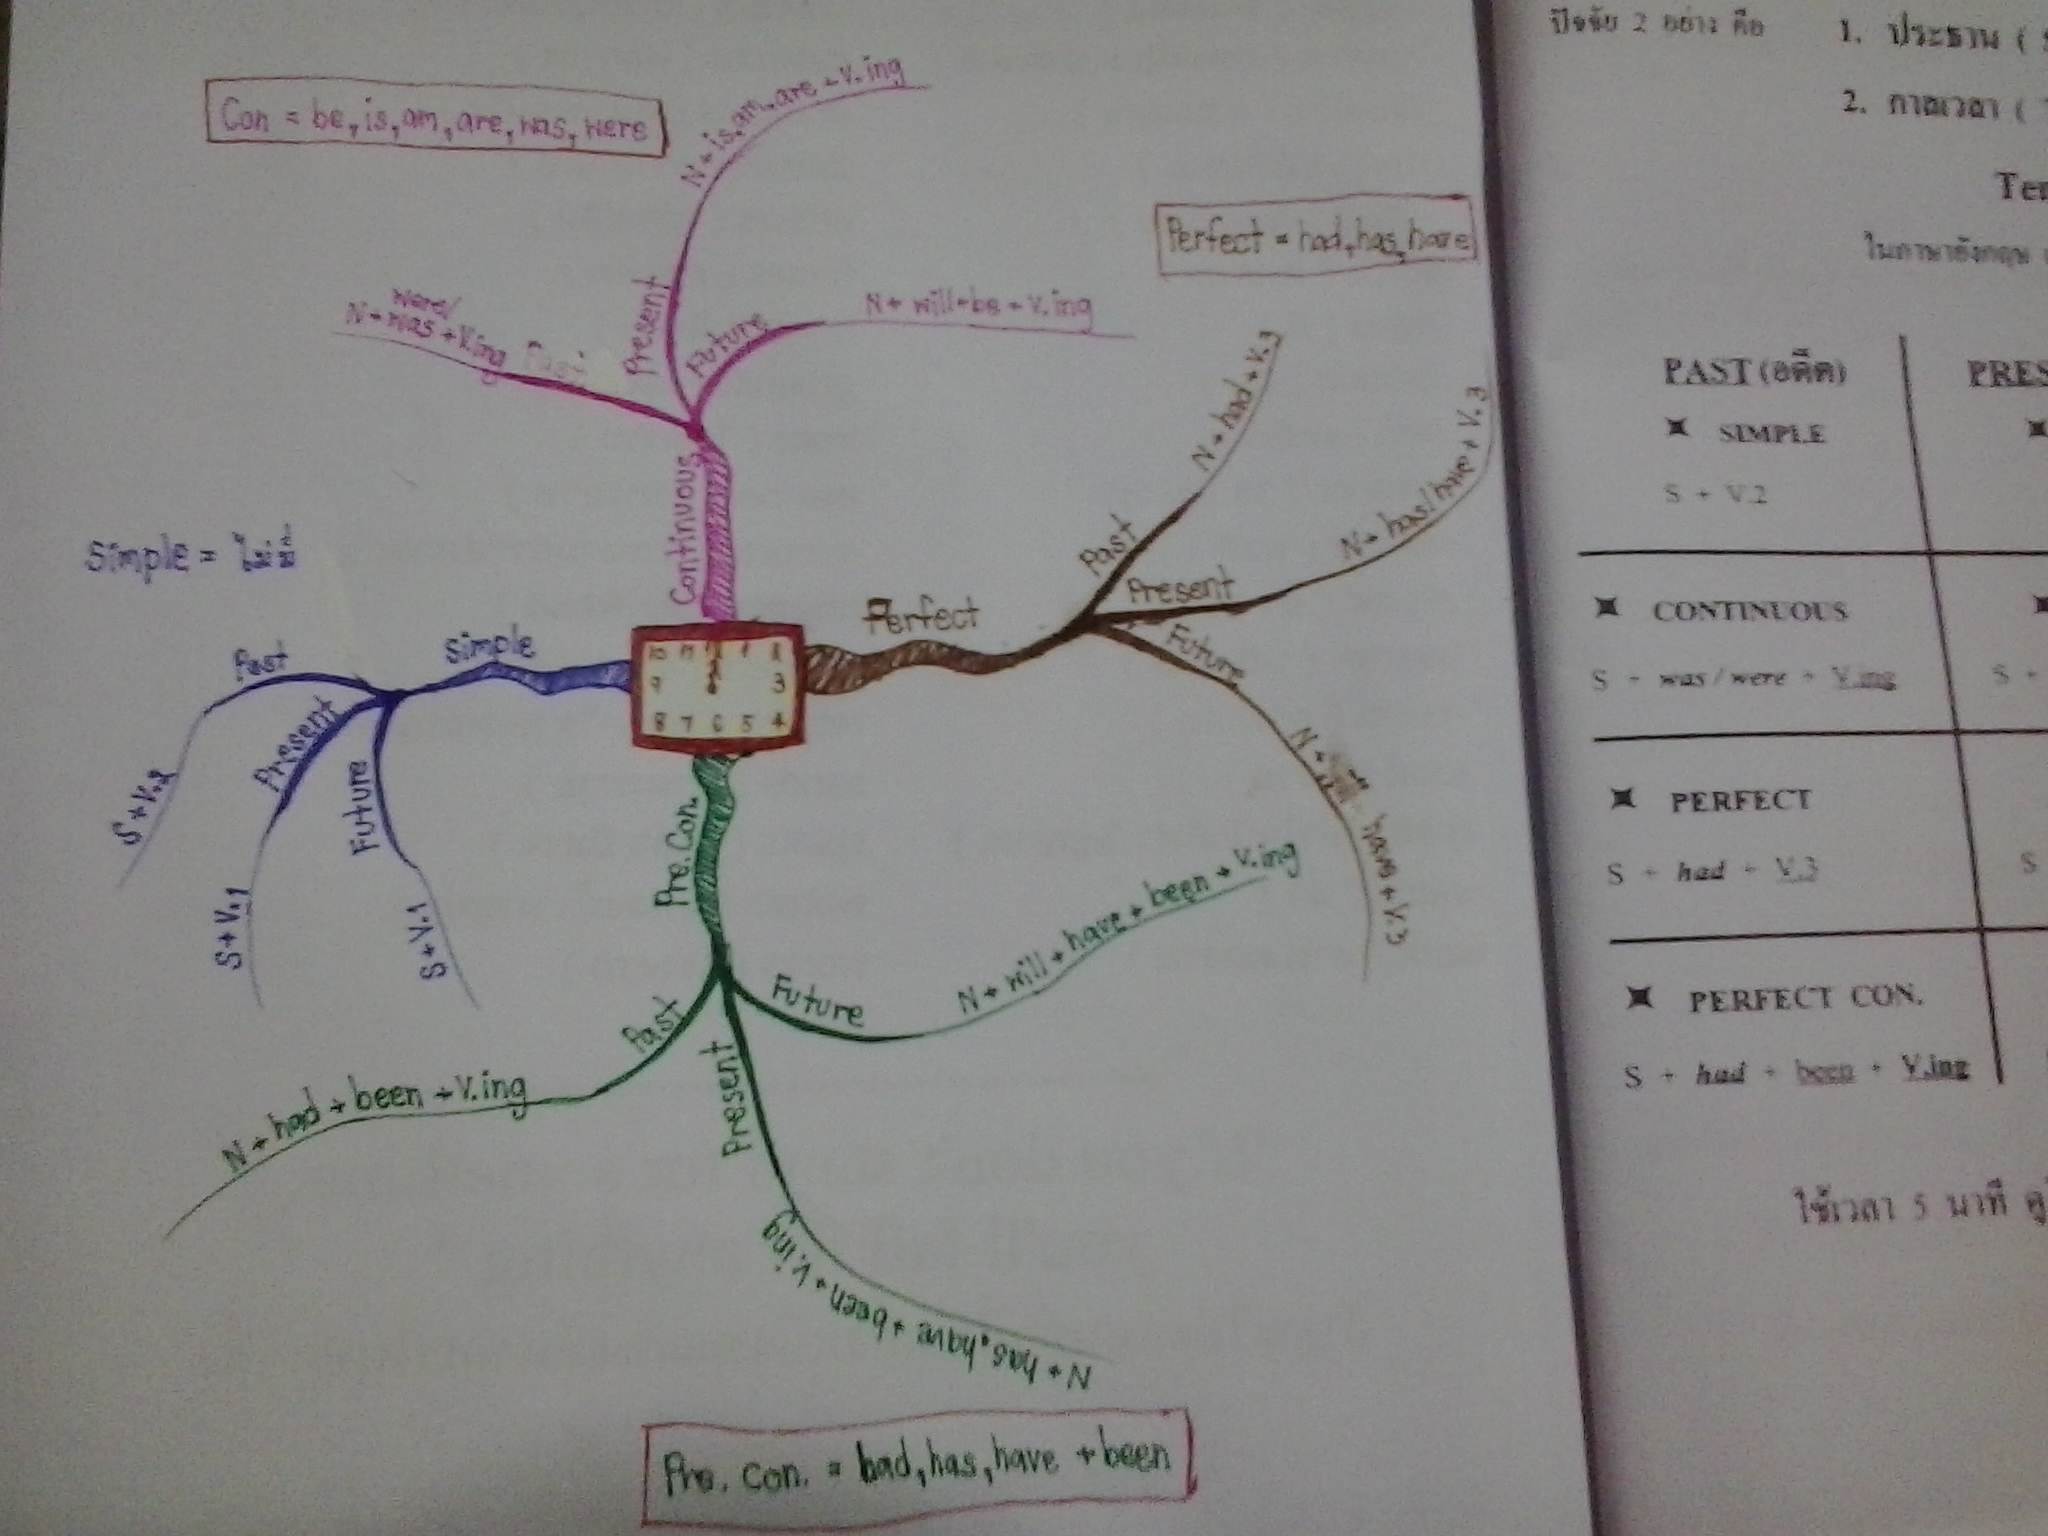 Con = be, is, am, are, was, were
N + is, am, are + V.ing
Present
were/
N + was + V.ing
Past
Future
N + will + be + V.ing
Continuous
Perfect = had, has, have
N + had + V.3
Past
N + has/have + V.3
Present
Future
have + V.3
Perfect
simple = ไม่มี
simple
Past
S + V.2
Present
S + V.1
Future
S + V.1
10 11 12 1 2
9 3
8 7 6 5 4
Pre. Con.
Past
N + had + been + V.ing
Present
N + has, have + been + V.ing
Future
N + will + have + been + V.ing
Pre. con. = had, has, have + been
ปัจจัย 2 อย่าง คือ
1. ประธาน (
2. กาลเวลา (
Ten
ในภาษาอังกฤษ
PAST (อดีต)
PRES
SIMPLE
S + V.2
CONTINUOUS
S + was / were + V.ing
S +
PERFECT
S + had + V.3
S
PERFECT CON.
S + had + been + V.ing
ใช้เวลา 5 นาที